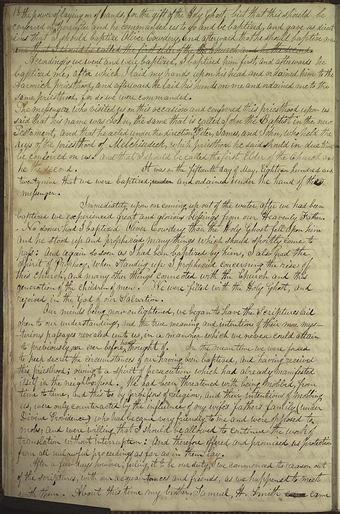 18 the power of laying on of hands, for the gift of the Holy Ghost, but that this should be
conferred on us hereafter and he commanded us to go and be baptized, and gave us direct-
ions that I should baptize Oliver Cowdery, and afterward that he should baptize me
Accordingly we went and were baptized, I baptized him first, and afterwards he
baptized me, after which I laid my hands upon his head and ordained him to the
Aaronick priesthood, and afterward he laid his hands on me and ordained me to the
same priesthood, for so we were commanded.
The messenger who visited us on this occasion and conferred this priesthood upon us
said that his name was John, the same that is called John the Baptist in the new
Testament, and that he acted under the direction of Peter, James, and John, who held the
keys of the priesthood of Melchisedeck, which priesthood he said should in due time
be conferred on us. and that I should be called the first Elder of the Church and
he the second. It was on the fifteenth day of May, Eighteen hundred and
twenty nine that we were baptized, and ordained under the hand of the
messenger.
Immediately upon our coming up out of the water after we had been
baptized we experienced great and glorious blessings from our Heavenly Father.
No sooner had I baptized Oliver Cowdery than the Holy Ghost fell upon him
and he stood up and prophecied many things which should shortly come to
pass: And again so soon as I had been baptized by him, I also had the
Spirit of Prophecy, when standing up I prophecied concerning the rise of
this church, and many other things connected with the Church and this
generation of the children of men. We were filled with the Holy Ghost, and
rejoiced in the God of our Salvation.
Our minds being now enlightened, we began to have the Scriptures laid
open to our understandings, and the true meaning and intention of their more mys-
terious passages revealed unto us, in a manner which we never could attain
to previously, nor ever before thought of. In the mean time we were forced
to keep secret the circumstances of our having been baptized, and having received
this priesthood; owing to a spirit of persecution which had already manifested
itself in the neighborhood. We had been threatened with being mobbed, from
time to time, and this too by professors of religion, and their intentions of mobbing
us, were only counteracted by the influence of my wife's father's family (under
Divine Providence) who had become very friendly to me and were opposed to
mobs; and were willing that I should be allowed to continue the work of
translation without interruption: And therefore offered and promised us protection
from all unlawful proceedings as far as in them lay.
After a few days however, feeling it to be our duty, we commenced to reason out
of the scriptures, with our acquaintances and friends, as we happened to meet
with them. About this time my brother Samuel, H. Smith came